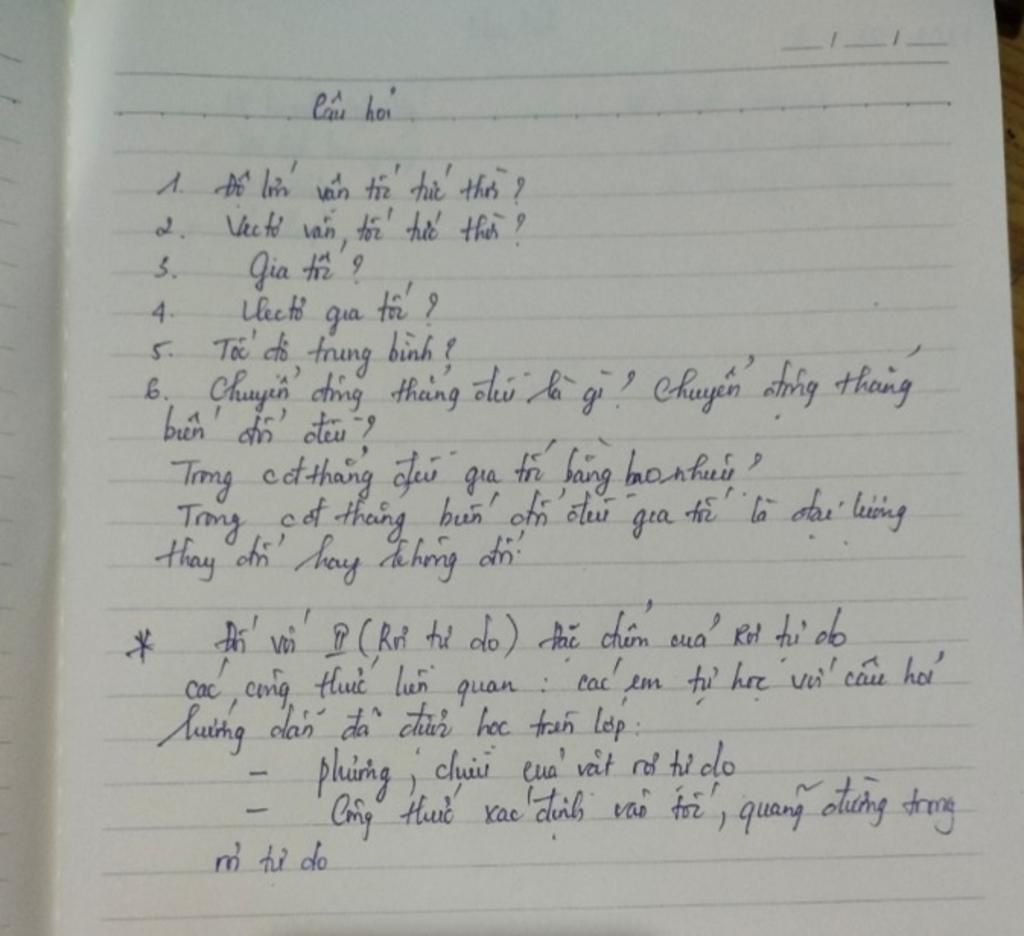 Câu hỏi
1. Độ lớn vận tốc tức thời?
2. Vectơ vận tốc tức thời?
3. Gia tốc?
4. Vectơ gia tốc?
5. Tốc độ trung bình?
6. Chuyển động thẳng đều là gì? Chuyển động thẳng
biến đổi đều?
Trong cđ thẳng đều gia tốc bằng bao nhiêu?
Trong cđ thẳng biến đổi đều gia tốc là đại lượng
thay đổi hay không đổi.
* Đối với II (Rơi tự do) Đặc điểm của Rơi tự do
các công thức liên quan: các em tự học với câu hỏi
hướng dẫn đã được học trên lớp:
- phương, chiều của vật rơi tự do
- Công thức xác định vận tốc, quãng đường trong
rơi tự do